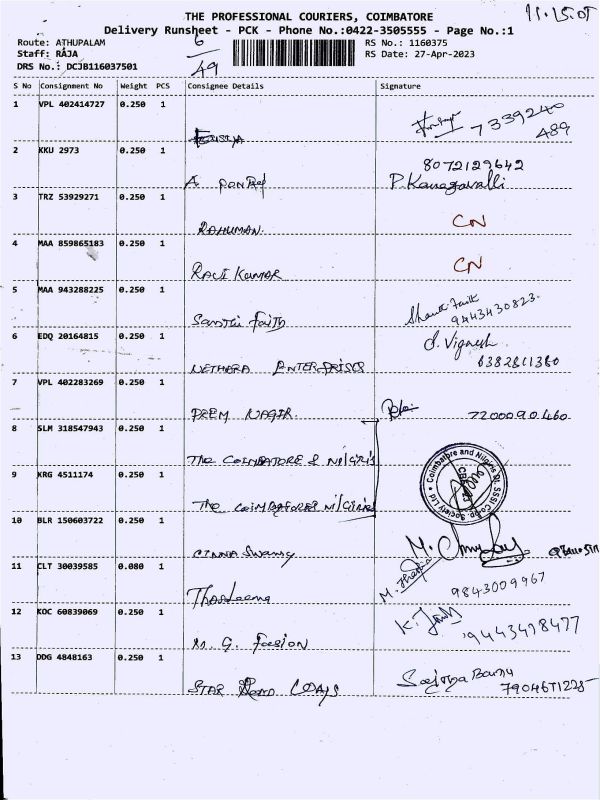 11.15.05
THE PROFESSIONAL COURIERS, COIMBATORE
Delivery Runsheet - PCK - Phone No.:0422-3505555 - Page No.:1
Route: ATHUPALAM
6
RS No.: 1160375
Staff: RAJA
RS Date: 27-Apr-2023
DRS No.: DCJB116037501
49
S No Consignment No Weight PCS Consignee Details Signature
1 VPL 402414727 0.250 1
7339240
489
2 KKU 2973 0.250 1
8072129642
A P.Kanagavalli
3 TRZ 53929271 0.250 1
RAHUMAN. CN
4 MAA 859865183 0.250 1
RAVI KUMAR CN
5 MAA 943288225 0.250 1
Santhi faith
9443430823.
6 EDQ 20164815 0.250 1
S. Vignesh
NETHRA ENTERPRISES 6382811380
7 VPL 402283269 0.250 1
PREM NAGIR. 7200090460
8 SLM 318547943 0.250 1
The COIMBATORE & NILGIRIS
9 KRG 4511174 0.250 1
The COIMBATORE NILGIRIS
Coimbatore and Nilgiris Dt. SSSI Co-op. Society Ltd
10 BLR 150603722 0.250 1
CINNA Swamy
11 CLT 30039585 0.080 1
9843009967
12 KOC 60839069 0.250 1
M. G. Fasion 9443418477
13 DDG 4848163 0.250 1
STAR Sajitha Banu
7904671225